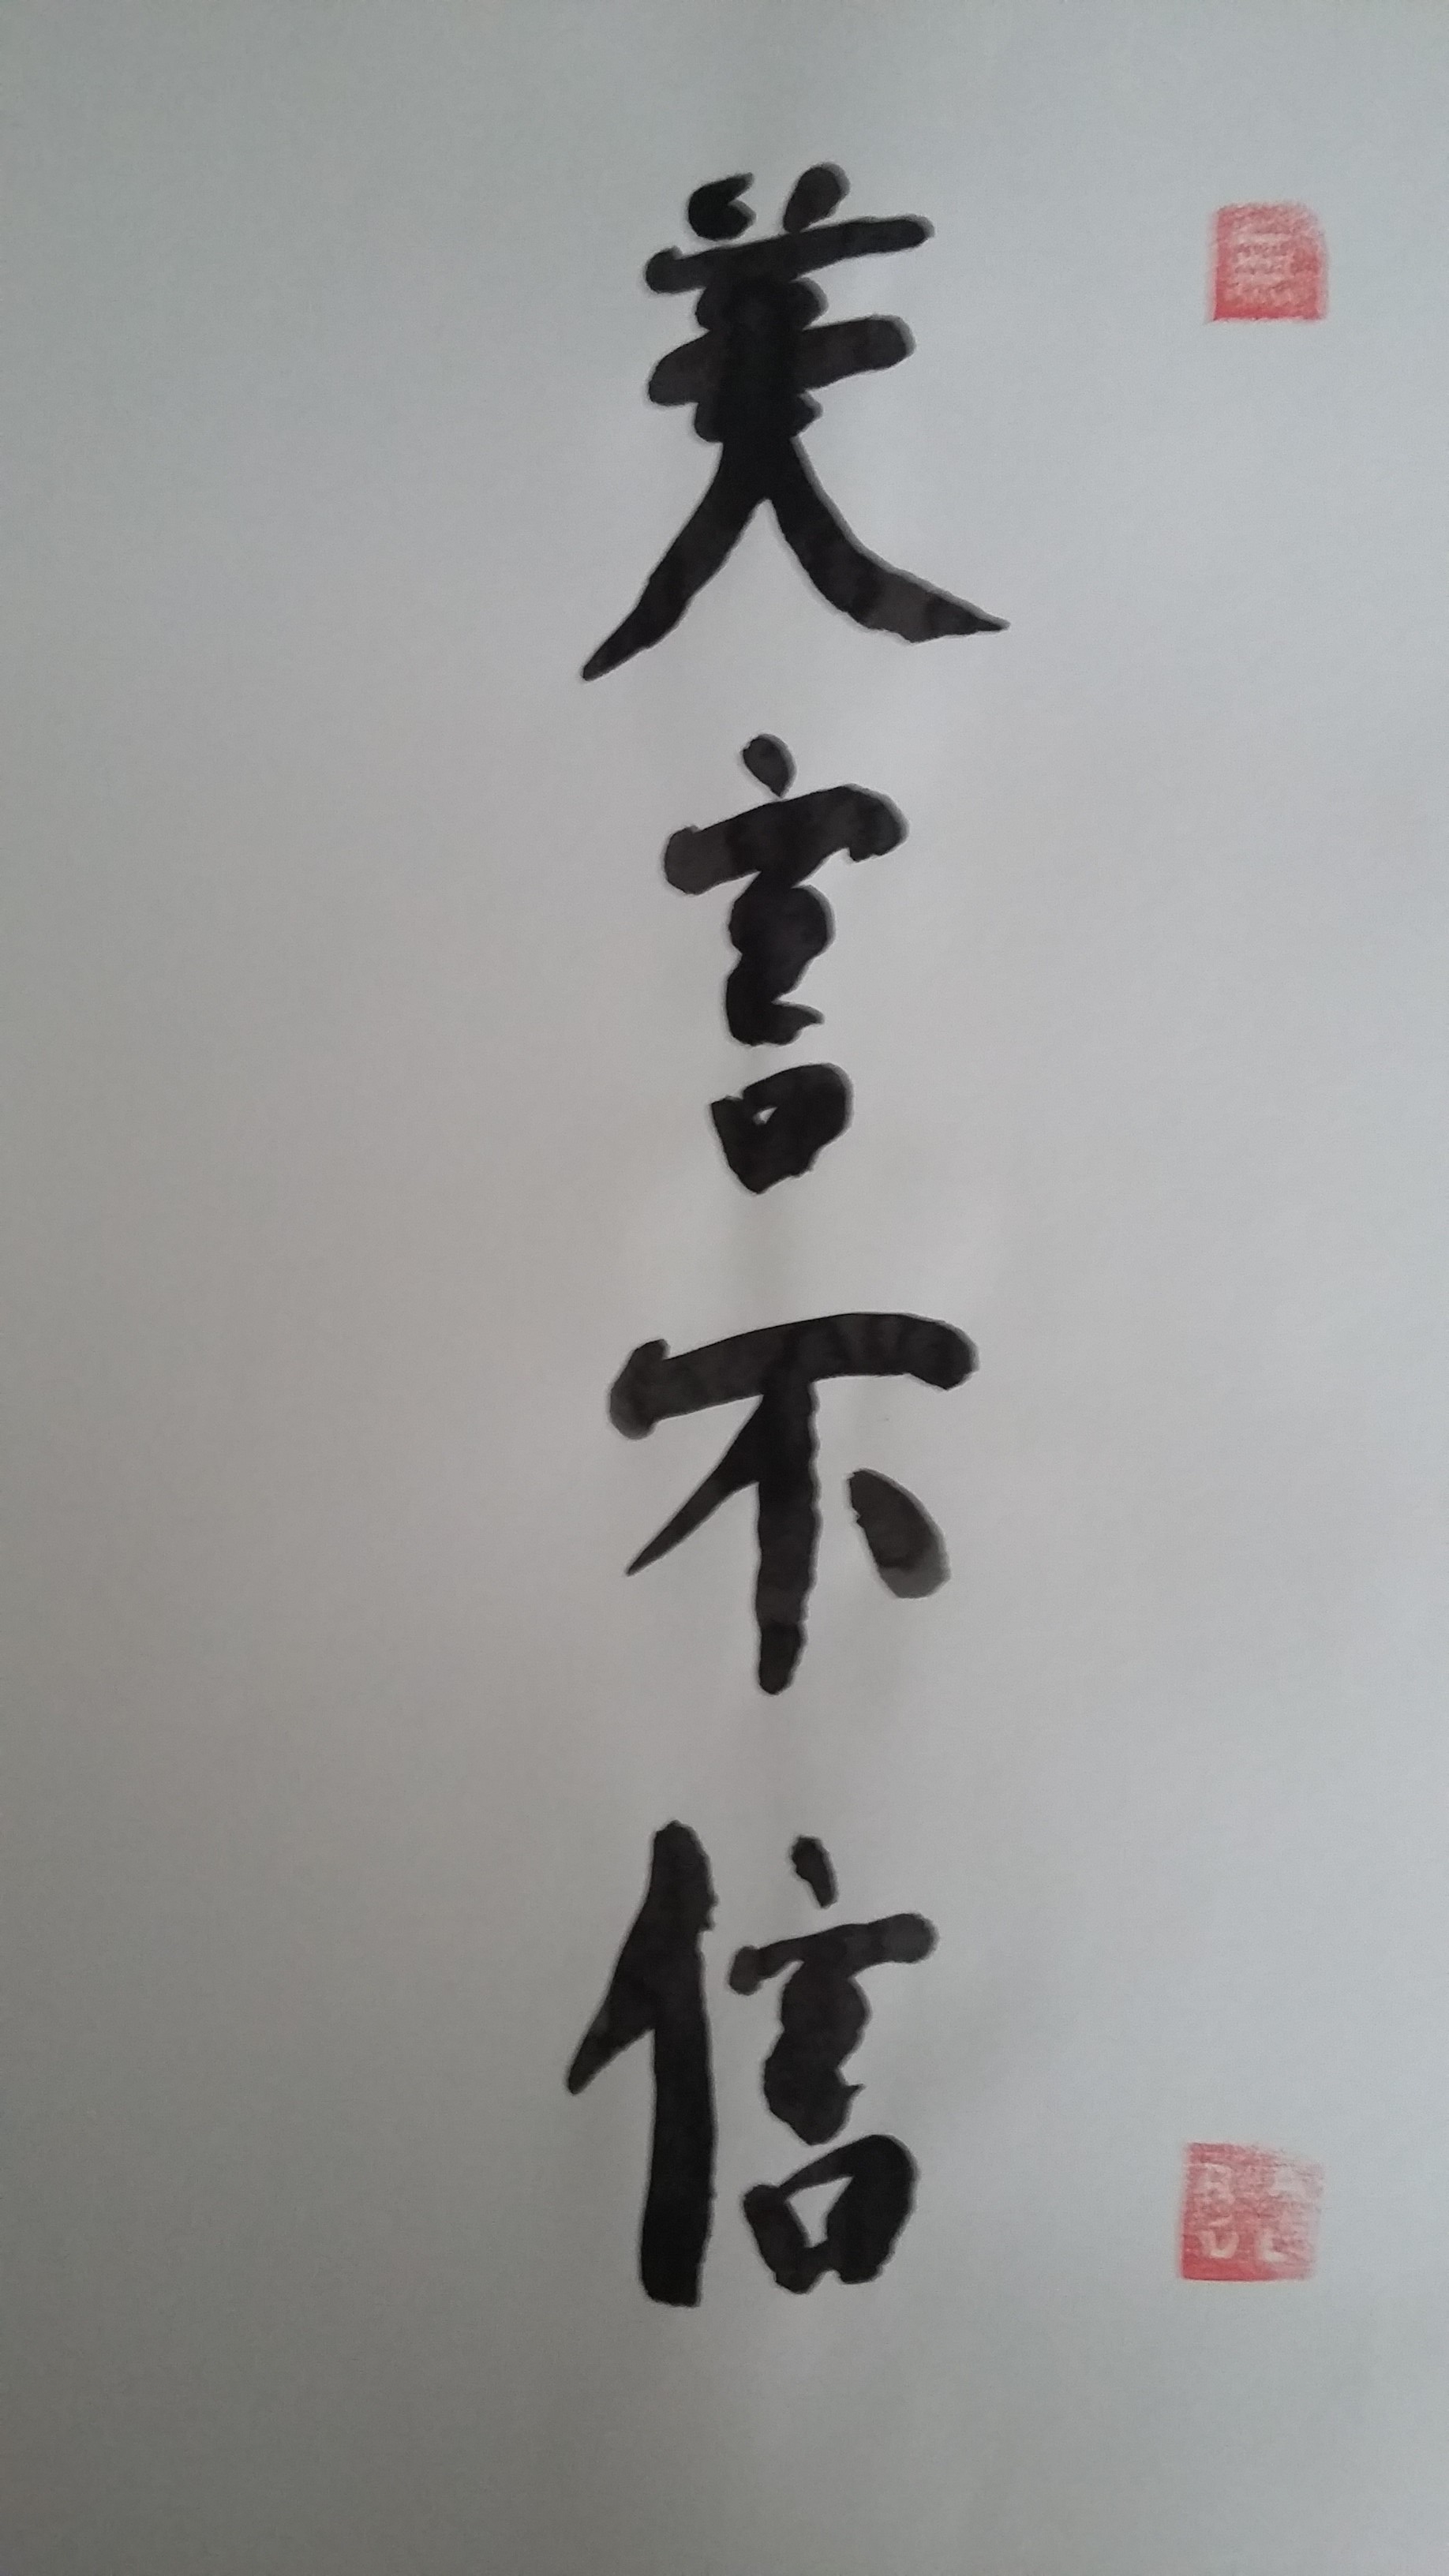 美言不信